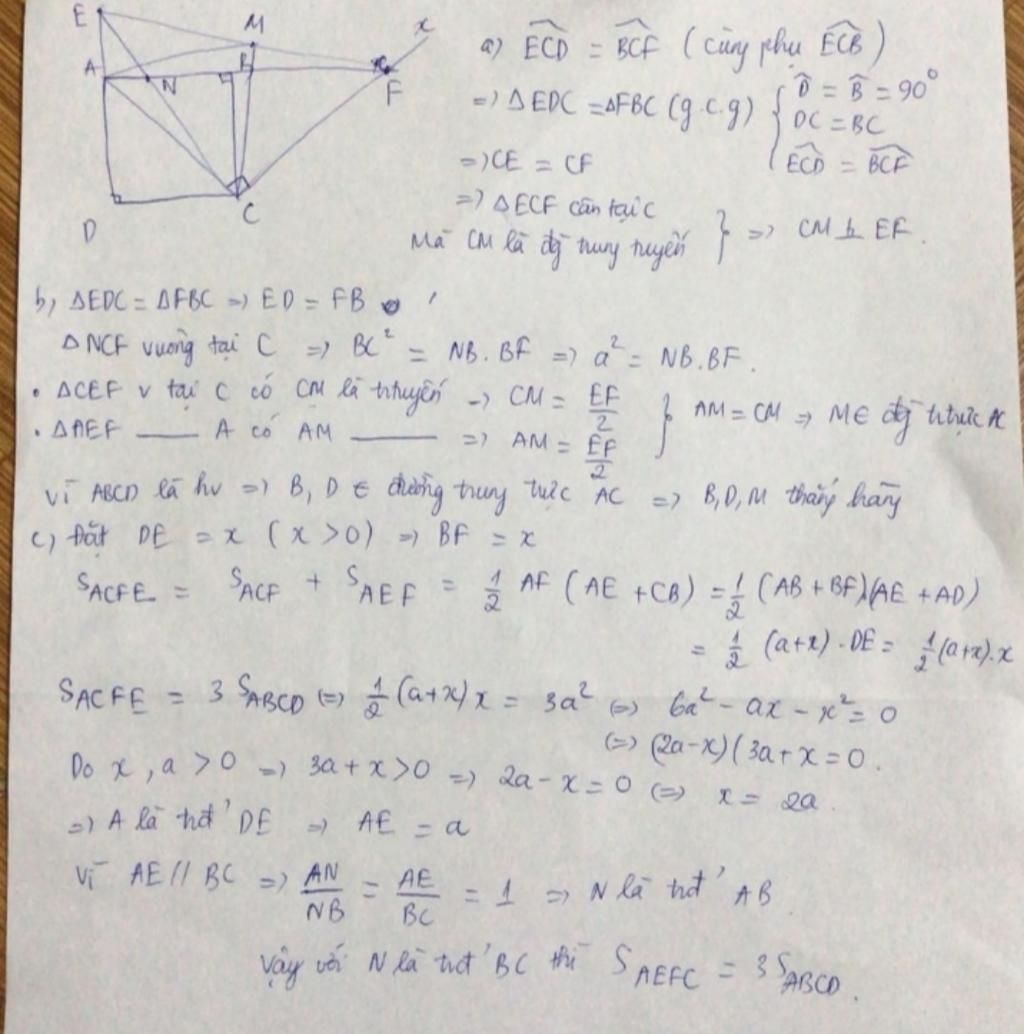 E
M
x
A
N
B
F
D
C
a) ECD = BCF (cùng phụ ECB)
=> ΔEDC = ΔFBC (g.c.g) { D = B = 90°
DC = BC
ECD = BCF
=> CE = CF
=> ΔECF cân tại C
Mà CM là đg trung tuyến } => CM ⊥ EF.
b, ΔEDC = ΔFBC => ED = FB
ΔNCF vuông tại C => BC² = NB.BF => a² = NB.BF.
• ΔCEF v tại C có CM là trtuyến -> CM = EF/2
• ΔAEF —— A có AM —— => AM = EF/2 } AM = CM => M ∈ đg trtrực AC
Vì ABCD là hv => B, D ∈ đường trung trực AC => B,D,M thẳng hàng
c, Đặt DE = x (x > 0) => BF = x
S_ACFE = S_ACF + S_AEF = 1/2 AF (AE + CB) = 1/2 (AB + BF)(AE + AD)
= 1/2 (a+x) . DE = 1/2 (a+x).x
S_ACFE = 3 S_ABCD <=> 1/2 (a+x) x = 3a² <=> 6a² - ax - x² = 0
<=> (2a-x)(3a+x = 0.
Do x, a > 0 => 3a + x > 0 => 2a - x = 0 <=> x = 2a
=> A là trđ' DE => AE = a
Vì AE // BC => AN/NB = AE/BC = 1 => N là trđ' AB
Vậy với N là trđ' BC thì S_AEFC = 3 S_ABCD.